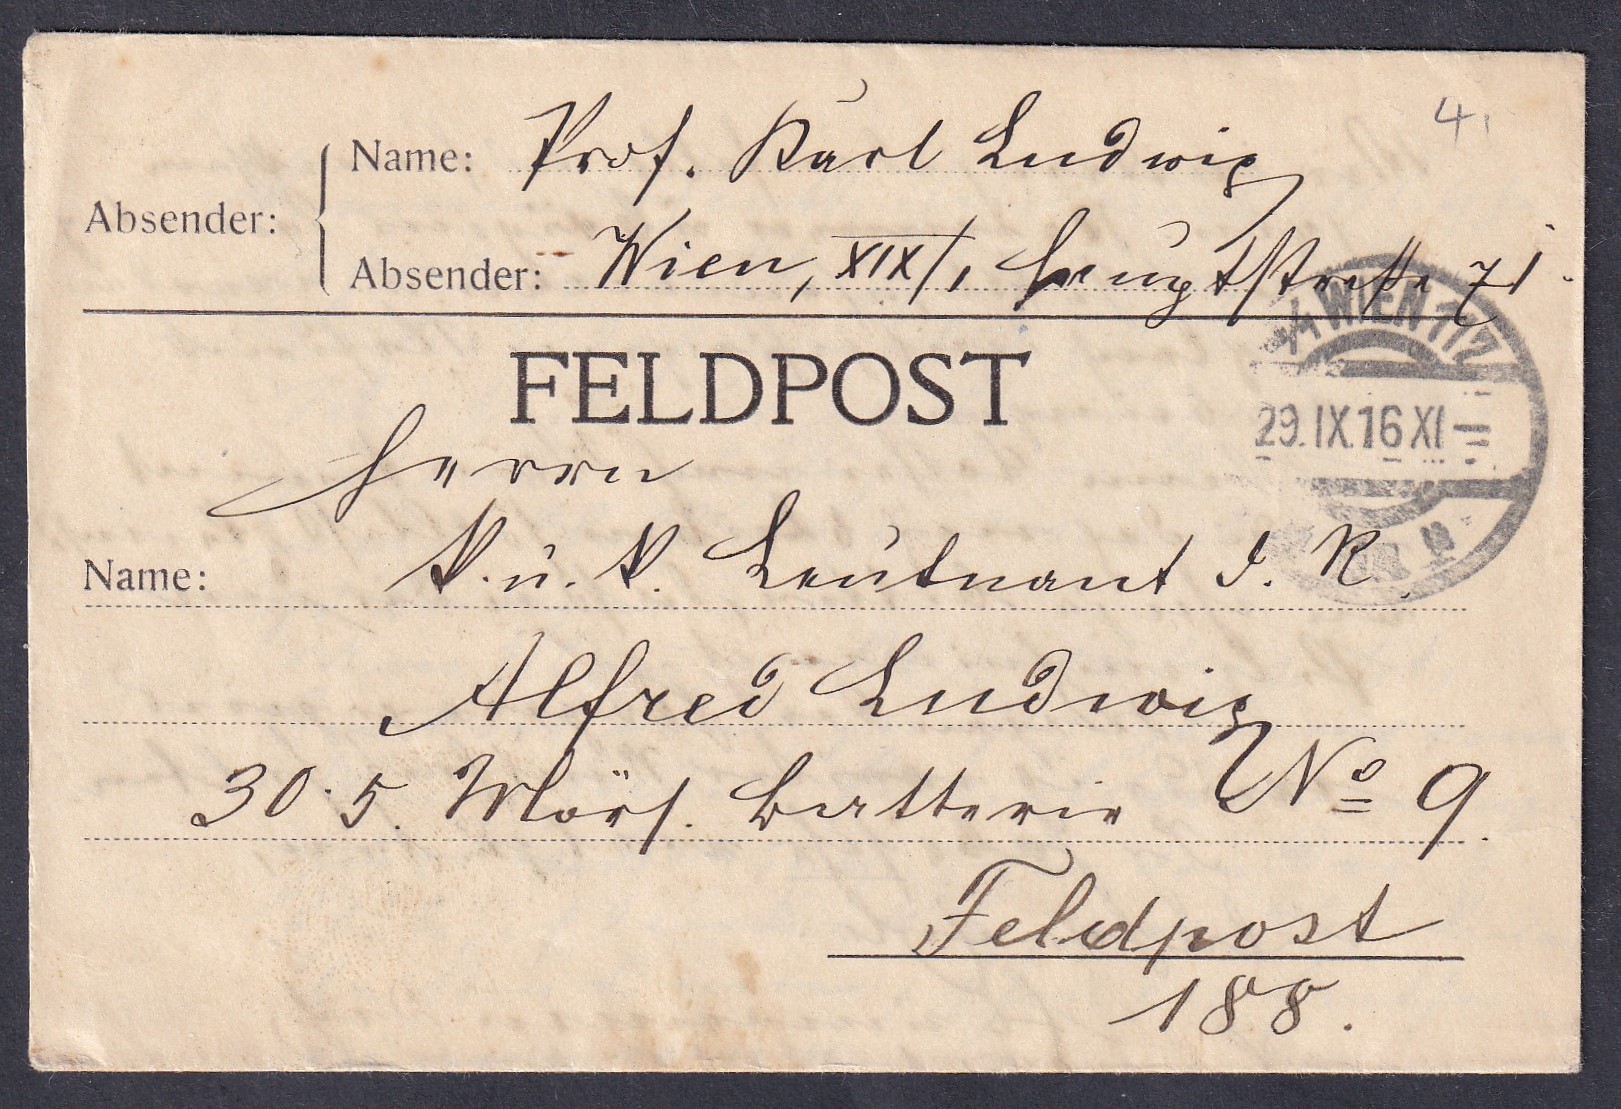 4.
Name: Prof. Karl Ludwig
Absender:
Absender: Wien, XIX/1, Hauptstraße 71
FELDPOST
WIEN 117
29.IX.16 XI
Herrn
Name: K. u. K. Leutnant d. R.
Alfred Ludwig
30·5. Mörs. Batterie No 9.
Feldpost
188.